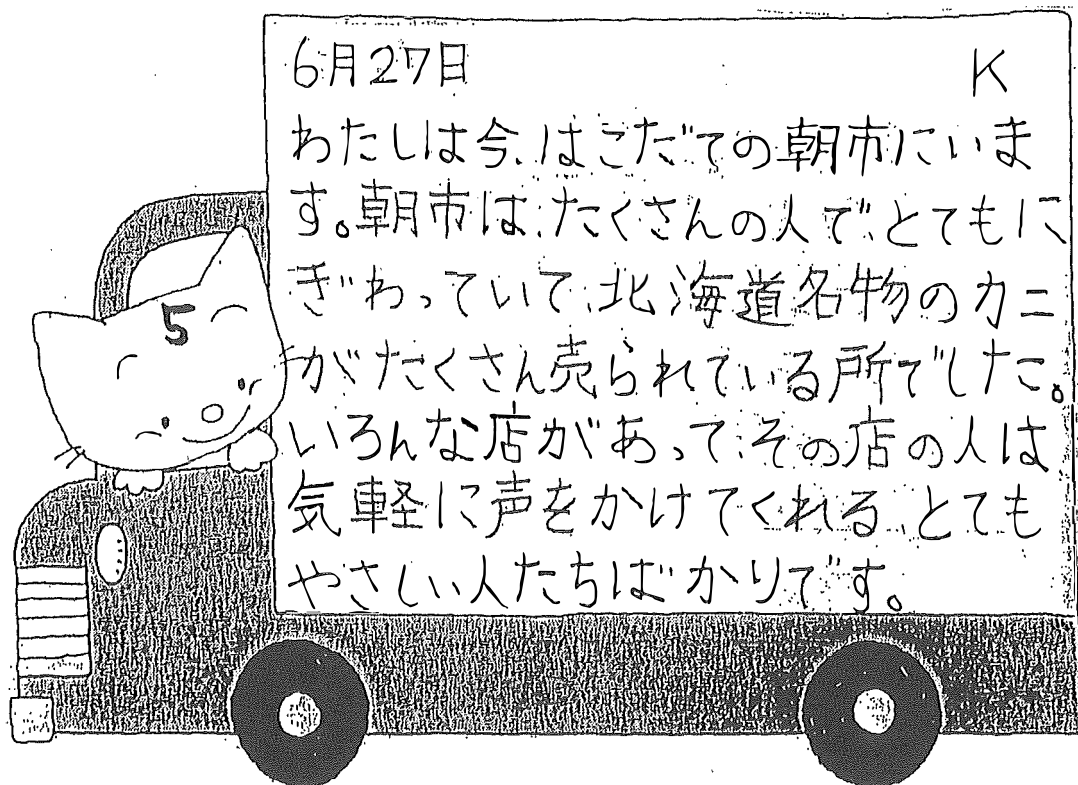 6月27日 K
わたしは今、はこだての朝市にいま
す。朝市は、たくさんの人で、とてもに
ぎわっていて、北海道名物のカニ
がたくさん売られている所でした。
いろんな店があって、その店の人は
気軽に声をかけてくれる、とても
やさしい人たちばかりです。
5